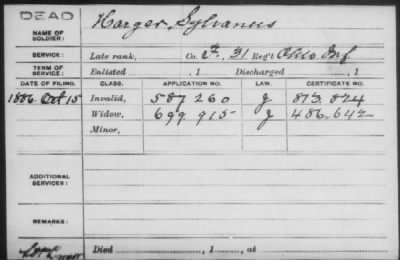 DEAD
NAME OF SOLDIER: Harger, Sylvanus
SERVICE: Late rank, Co. F, 31 Reg't Ohio Inf
TERM OF SERVICE: Enlisted , 1 Discharged , 1
DATE OF FILING. CLASS. APPLICATION NO. LAW. CERTIFICATE NO.
1886. Oct 15 Invalid, 587 260 J 813.824
Widow, 699.915 J 486.642
Minor,
ADDITIONAL SERVICES:
REMARKS:
Died , 1 , at